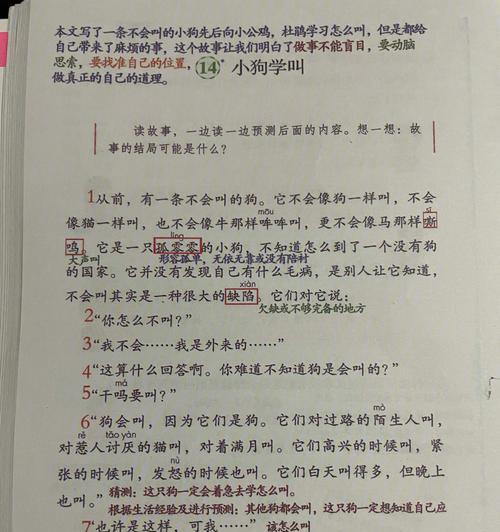 本文写了一条不会叫的小狗先后向小公鸡，杜鹃学习怎么叫，但是都给
自己带来了麻烦的事，这个故事让我们明白了做事不能盲目，要动脑
思索，要找准自己的位置，
14* 小狗学叫
做真正的自己的道理。
读故事，一边读一边预测后面的内容。想一想：故
事的结局可能是什么？
1从前，有一条不会叫的狗。它不会像狗一样叫，不会
mōu
sī
像猫一样叫，也不会像牛那样哞哞叫，更不会像马那样嘶
líng
鸣。它是一只孤零零的小狗，不知道怎么到了一个没有狗
大声叫
形容孤单，无依无靠或没有陪衬
的国家。它并没有发现自己有什么毛病，是别人让它知道，
xiàn
不会叫其实是一种很大的缺陷。它们对它说：
欠缺或不够完备的地方
2“你怎么不叫？”
3“我不会……我是外来的……”
4“这算什么回答啊。你难道不知道狗是会叫的？”
má
5“干吗要叫？”
mò
6“狗会叫，因为它们是狗。它们对过路的陌生人叫，
rě
tǎo yàn
对惹人讨厌的猫叫，对着满月叫。它们高兴的时候叫，紧
nù
张的时候叫，发怒的时候也叫。它们白天叫得多，但晚上
也叫。”
猜测：这只狗一定会着急去学怎么叫。
根据生活经验及进行预测：其他狗都会叫，这只狗一定想知道自己应
该怎么叫
7“也许是这样，可我……”